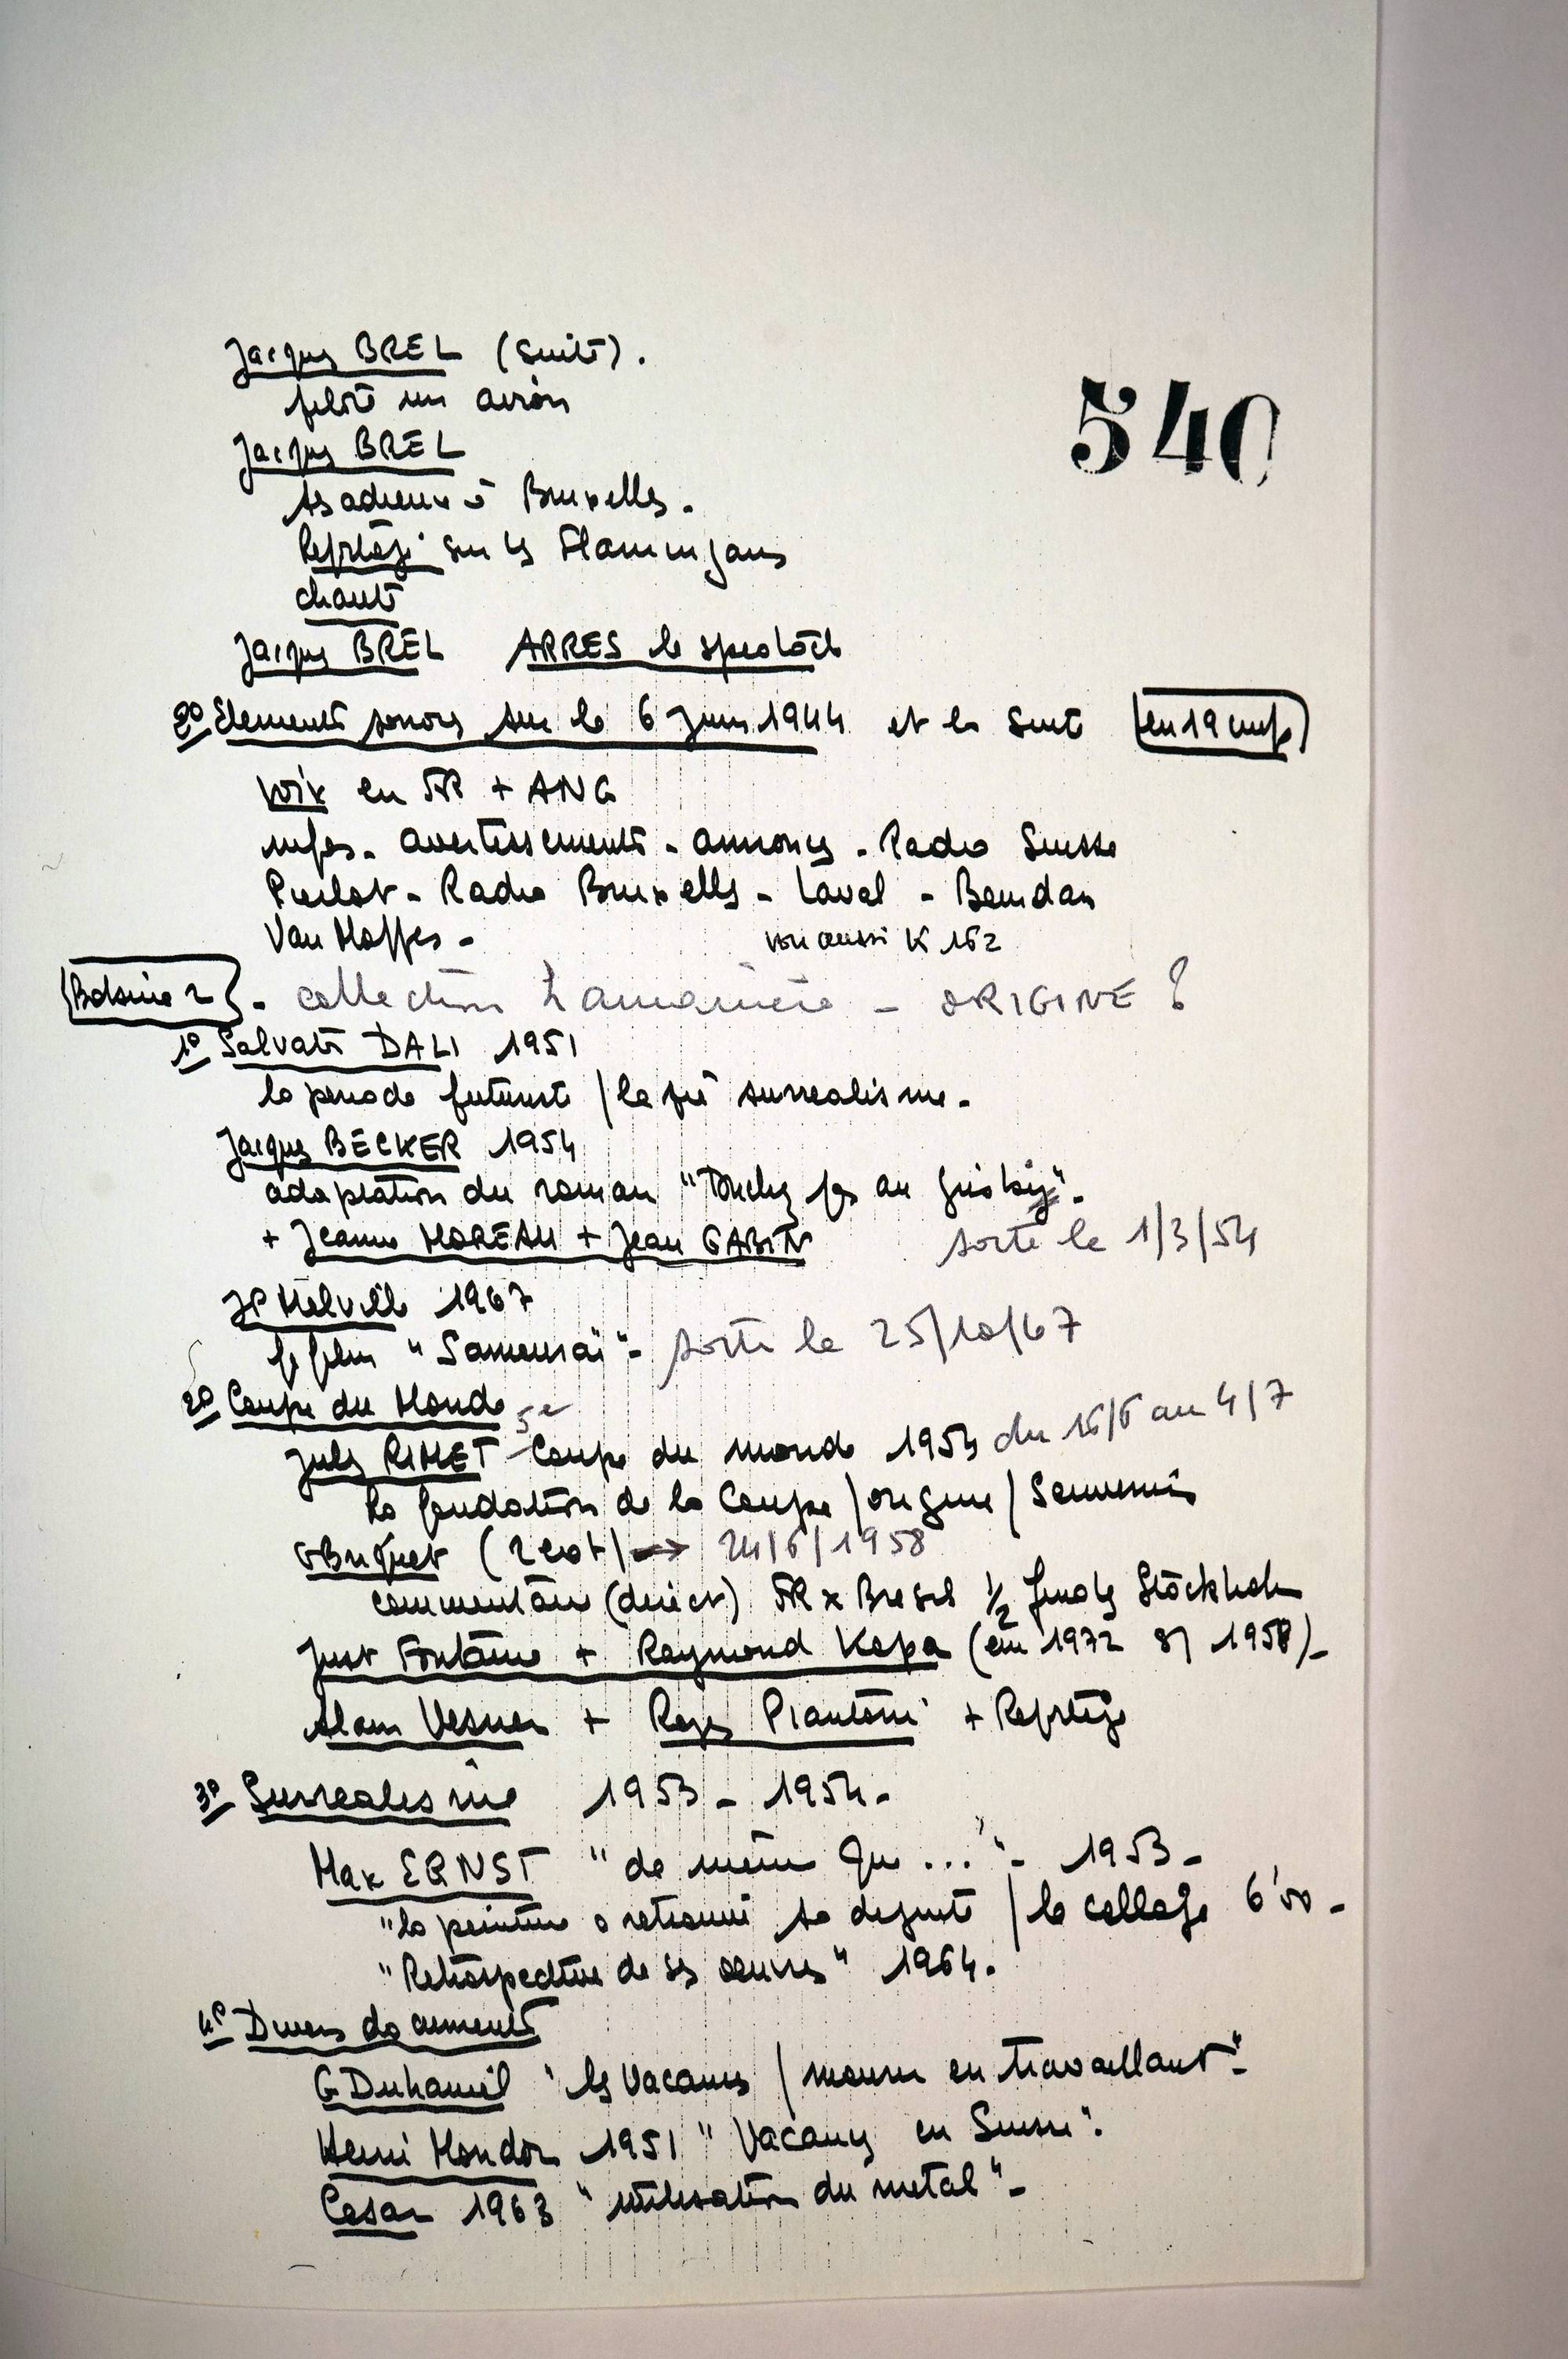 Jacques BREL (suite).
540
pilote un avion
Jacques BREL
ses adieux à Bruxelles.
sur les Flamingans
chante
Jacques BREL ARRES le spectacle
8° Elements sonores sur le 6 Juin 1944 et la suite
voix en FR + ANG
infos - avertissements - annonces - Radio Suisse
Pierlot - Radio Bruxelles - Laval - Beaudan
Van Moppes - voir aussi K 162
Bobine 2 - collection - ORIGINE ?
1° Salvador DALI 1951
la periode futuriste / le surrealisme.
Jacques BECKER 1954
adaptation du roman "Touchez pas au grisby".
+ Jeanne MOREAU + Jean GABIN sorti le 1/3/54
JP Melville 1967
film "Samouraï" - sorti le 25/10/67
2° Coupe du Monde
Jules RIMET 5e Coupe du monde 1954 du 16/6 au 4/7
la fondation de la Coupe / origine / Souvenirs
G Briquet → 24/6/1958
commentaire (direct) FR x Bresil 1/2 finale Stockholm
Just Fontaine + Raymond Kopa (en 1972 s/ 1958) -
Alain + Roger Piantoni +
3° Surrealisme 1953 - 1954 -
Max ERNST "de même que ..." - 1953 -
"la peinture a retrouvé sa / le collage 6'00 -
"Retrospective de ses oeuvres" 1964.
4° Divers documents
G Duhamel "les Vacances / mourir en travaillant" -
Henri Mondor 1951 "Vacances en Suisse".
Cesar 1963 "utilisation du metal" -